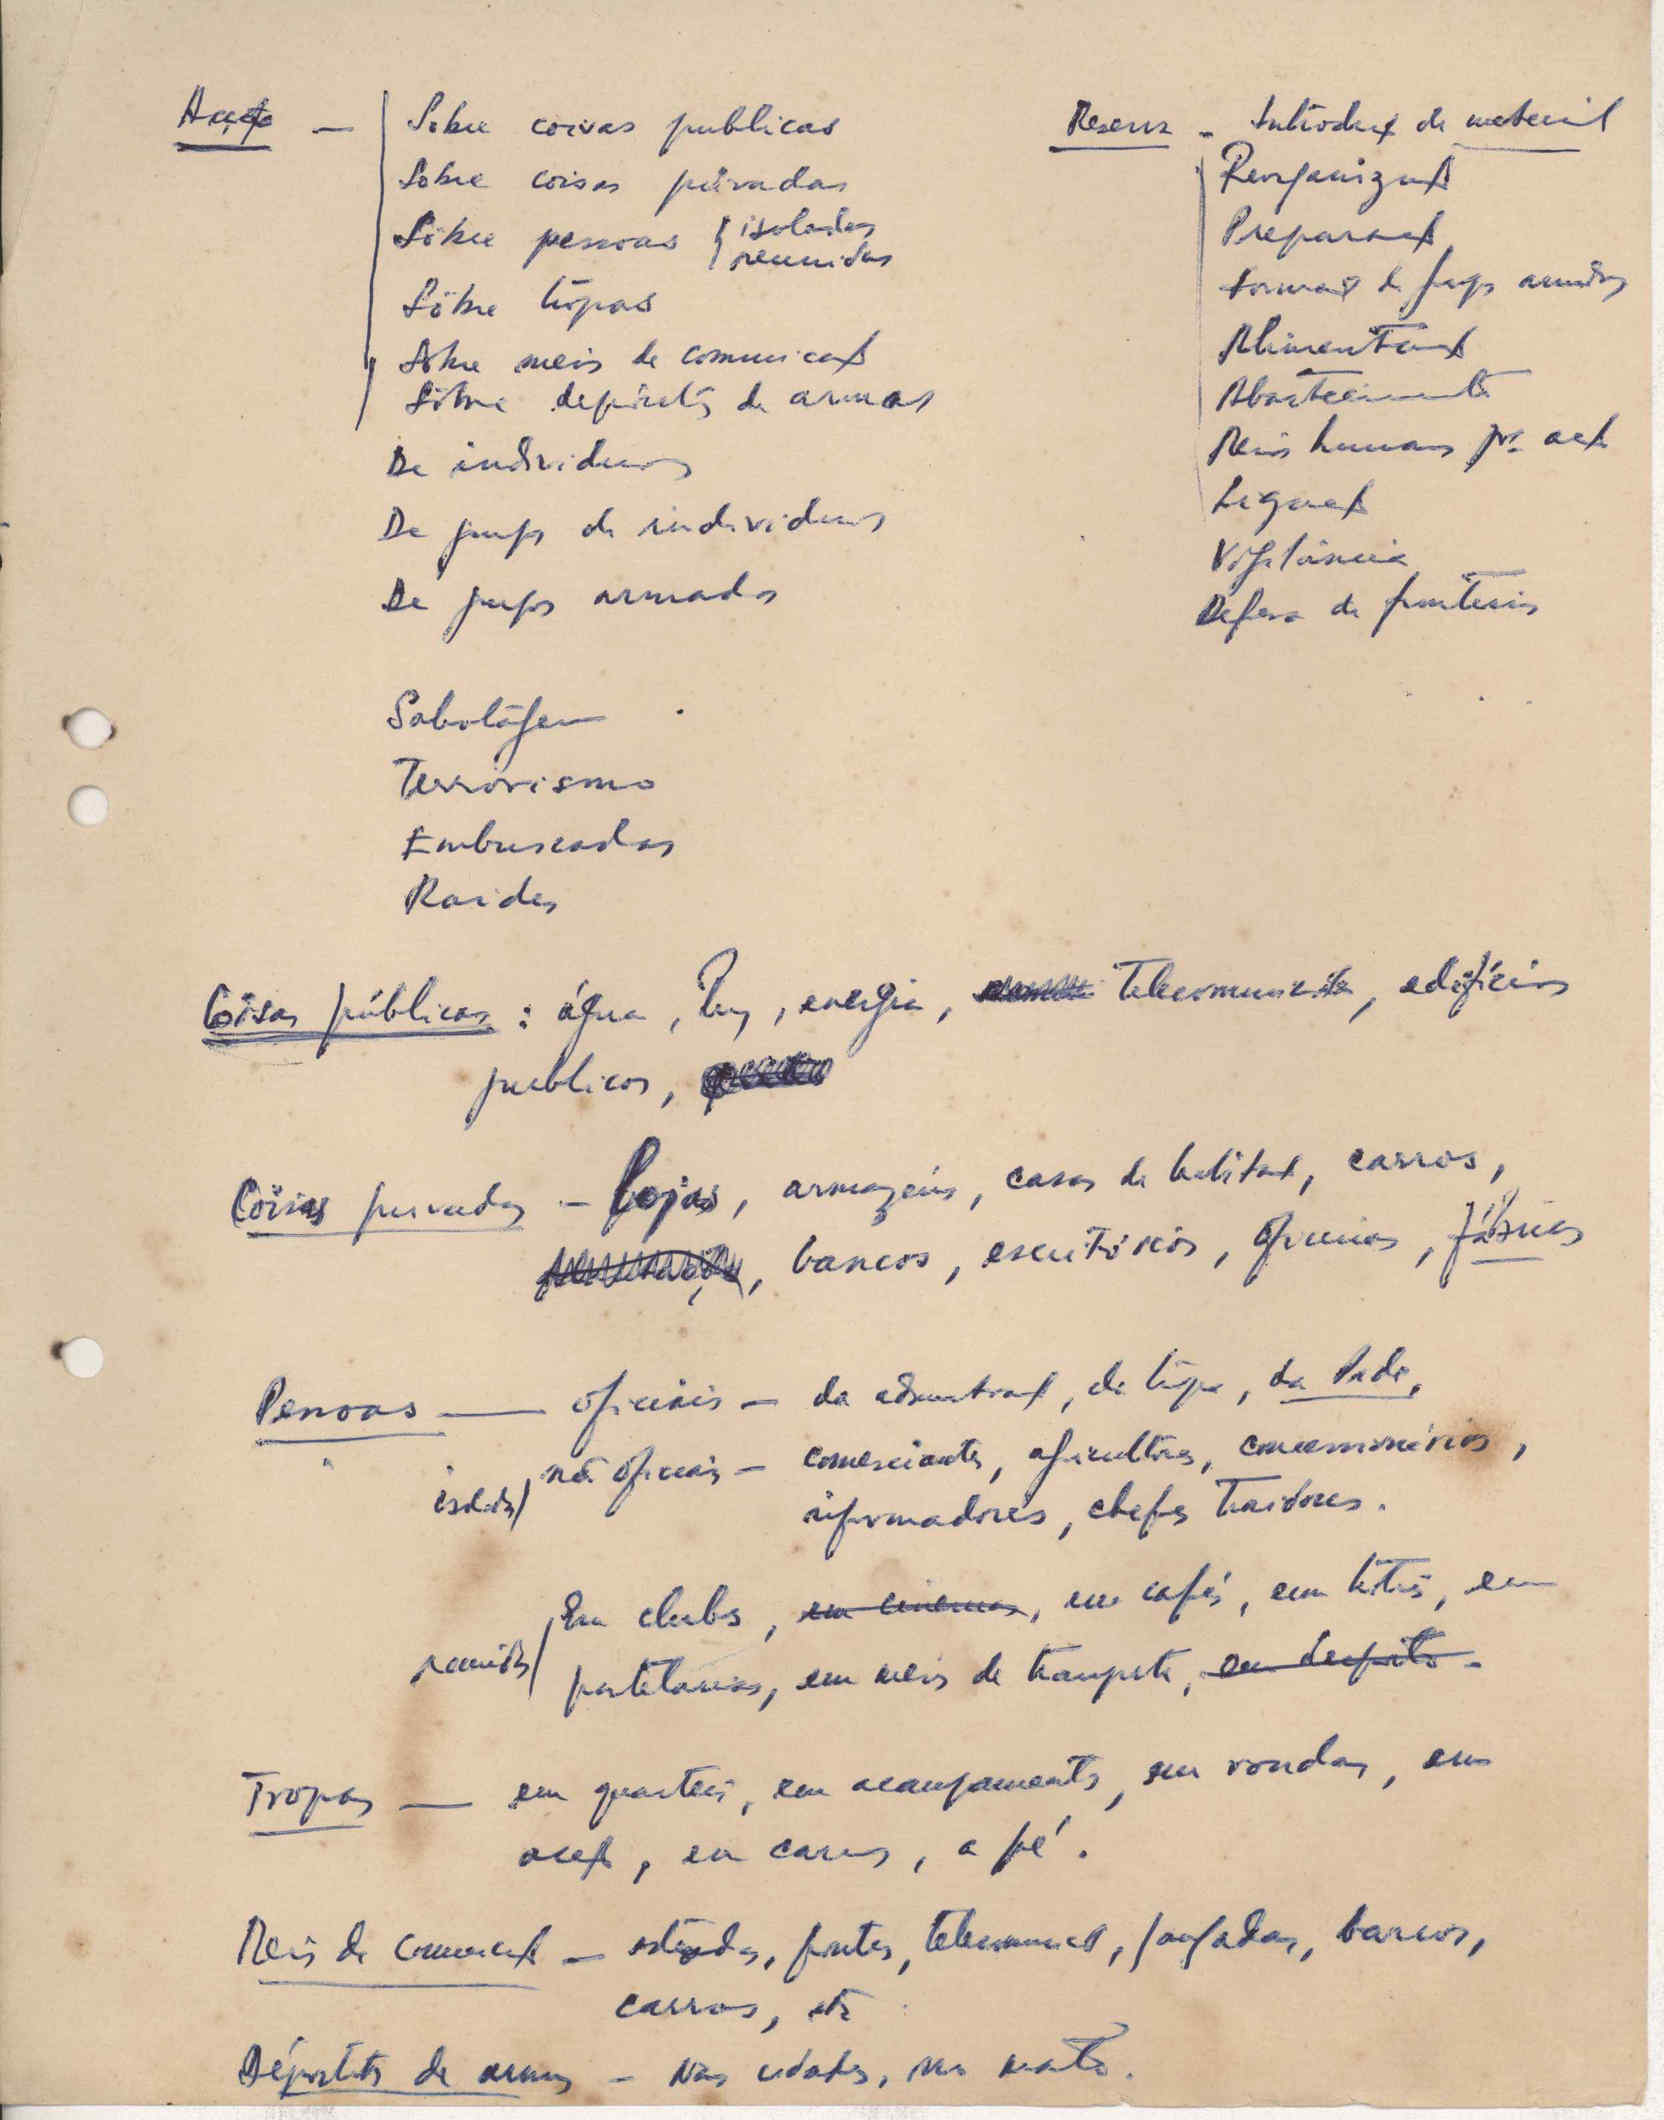 Acção —
Sobre coisas publicas
Sobre coisas privadas
Sôbre pessoas { isoladas
reunidas
Sôbre trópas
Sôbre meis de comunicaç
Sôbre depósitos de armas
De individuos
De grups de individuos
De grupos armados
Sabotágem
Terrorismo
Embuscadas
Raides
Reserva - Introduç de material
Reorganizaç
Preparaç
Formaç de grups armados
Alimentaç
Abastecimento
Meios humanos pra acç
Ligaaç
Vigilância
Defesa de fronteiras
Côisas públicas : água, luz, energia, telecomunicações, edifícios
publicos,
Côisas privadas — lojas, armazéns, casas de habitaç, carros,
, bancos, escritórios, oficinas, fábricas
Pessoas — oficiais — da adminstraç, da tropa, da Pide,
isolados / não oficiais — comerciantes, agricultores, concessionários,
informadores, chefes traidores.
reunidos / Em clubs, em cinemas, em cafés, em hotéis, em
pastelarias, em meis de transporte, em desporto -
Tropas — em quarteis, em acampamentos, em rondas, em
acç, em carros, a pé.
Meis de comunicaç — estradas, pontes, telecomunicaç, jangadas, barcos,
carros, etc
Depósitos de armas — nas cidades, no mato.